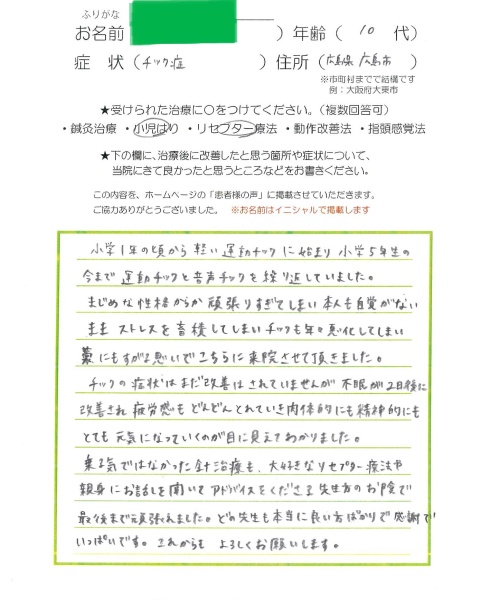 ふりがな
お名前（　　　　）年齢（ 10 代）
症 状（チック症　　　　）住所（広島県 広島市　）
※市町村までで結構です
例：大阪府大東市
★受けられた治療に○をつけてください。（複数回答可）
・鍼灸治療 ・小児はり ・リセプター療法 ・動作改善法 ・指頭感覚法
★下の欄に、治療後に改善したと思う箇所や症状について、
当院にきて良かったと思うところなどをお書きください。
この内容を、ホームページの「患者様の声」に掲載させていただきます。
ご協力ありがとうございました。　※お名前はイニシャルで掲載します
小学1年の頃から軽い運動チックに始まり小学5年生の
今まで運動チックと音声チックを繰り返していました。
まじめな性格からか頑張りすぎてしまい本人も自覚がない
ままストレスを蓄積してしまいチックも年々悪化してしまい
藁にもすがる思いでこちらに来院させて頂きました。
チックの症状はまだ改善はされていませんが不眠が2日後に
改善され疲労感もどんどんとれていき肉体的にも精神的にも
とても元気になっていくのが目に見えてわかりました。
乗る気ではなかった針治療も、大好きなリセプター療法や
親身にお話しを聞いてアドバイスをくださる先生方のお陰で
最後まで頑張れました。どの先生も本当に良い方ばかりで感謝で
いっぱいです。これからもよろしくお願いします。